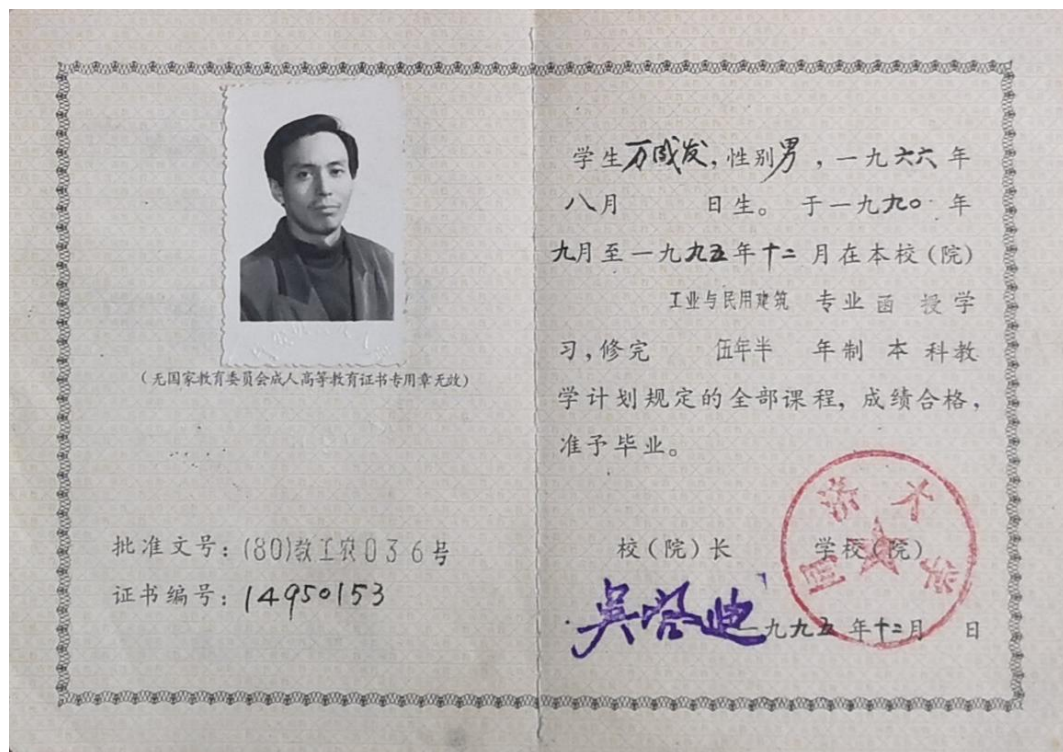 (无国家教育委员会成人高等教育证书专用章无效)
批准文号:(80)教工农036号
证书编号:14950153
学生万成发,性别男,一九六六年
八月 日生。于一九九〇年
九月至一九九五年十二月在本校(院)
工业与民用建筑 专业函授学
习,修完 伍年半 年制 本 科教
学计划规定的全部课程,成绩合格,
准予毕业。
校(院)长 学校(院)
吴启迪
一九九五年十二月 日
同济大学